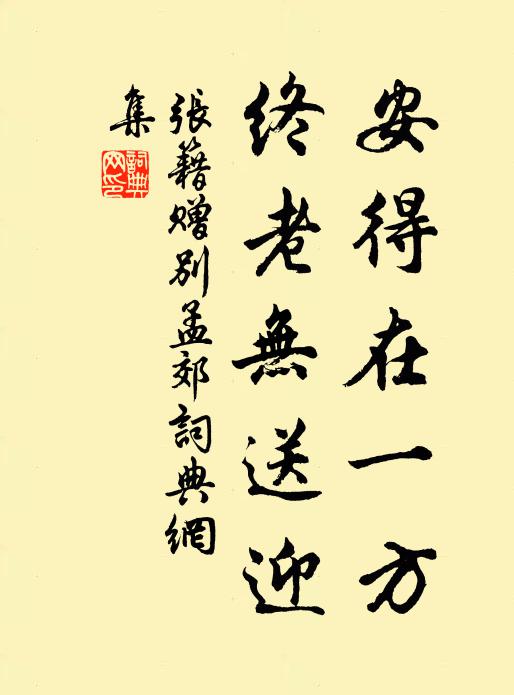 安得在一方
終老無送迎
張籍贈別孟郊詞典網
集
詞典
网印